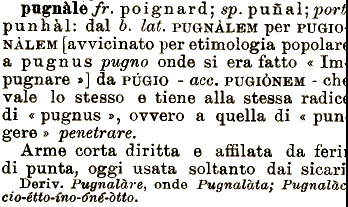 pugnàle fr. poignard; sp. puñal; port
punhàl: dal b. lat. PUGNÀLEM per PUGIO-
NÀLEM [avvicinato per etimologia popolare
a pugnus pugno onde si era fatto « Im-
pugnare »] da PÚGIO - acc. PUGIÒNEM - che
vale lo stesso e tiene alla stessa radice
di « pugnus », ovvero a quella di « pun-
gere » penetrare.
Arme corta diritta e affilata da feri
di punta, oggi usata soltanto dai sicari
Deriv. Pugnalàre, onde Pugnalàta; Pugnalàc
cio-étto-íno-óné-òtto.